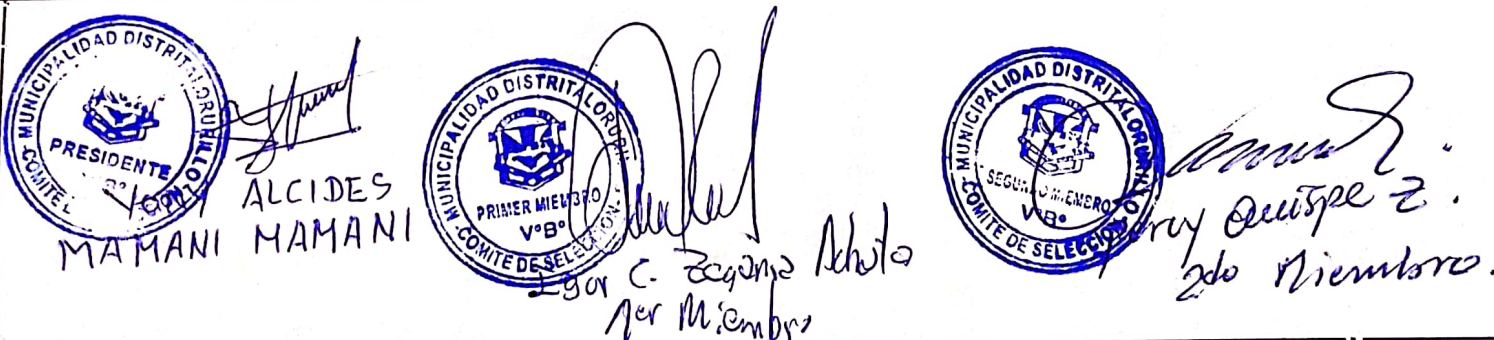 MUNICIPALIDAD DISTRITAL ORURILLO
PRESIDENTE
COMITE
YONY ALCIDES
MAMANI MAMANI
MUNICIPALIDAD DISTRITAL ORURILLO
PRIMER MIEMBRO
V°B°
COMITE DE SELECCION
Igor C.
1er Miembro
MUNICIPALIDAD DISTRITAL ORURILLO
SEGUNDO MIEMBRO
V°B°
COMITE DE SELECCION
Quispe Z.
2do Miembro.